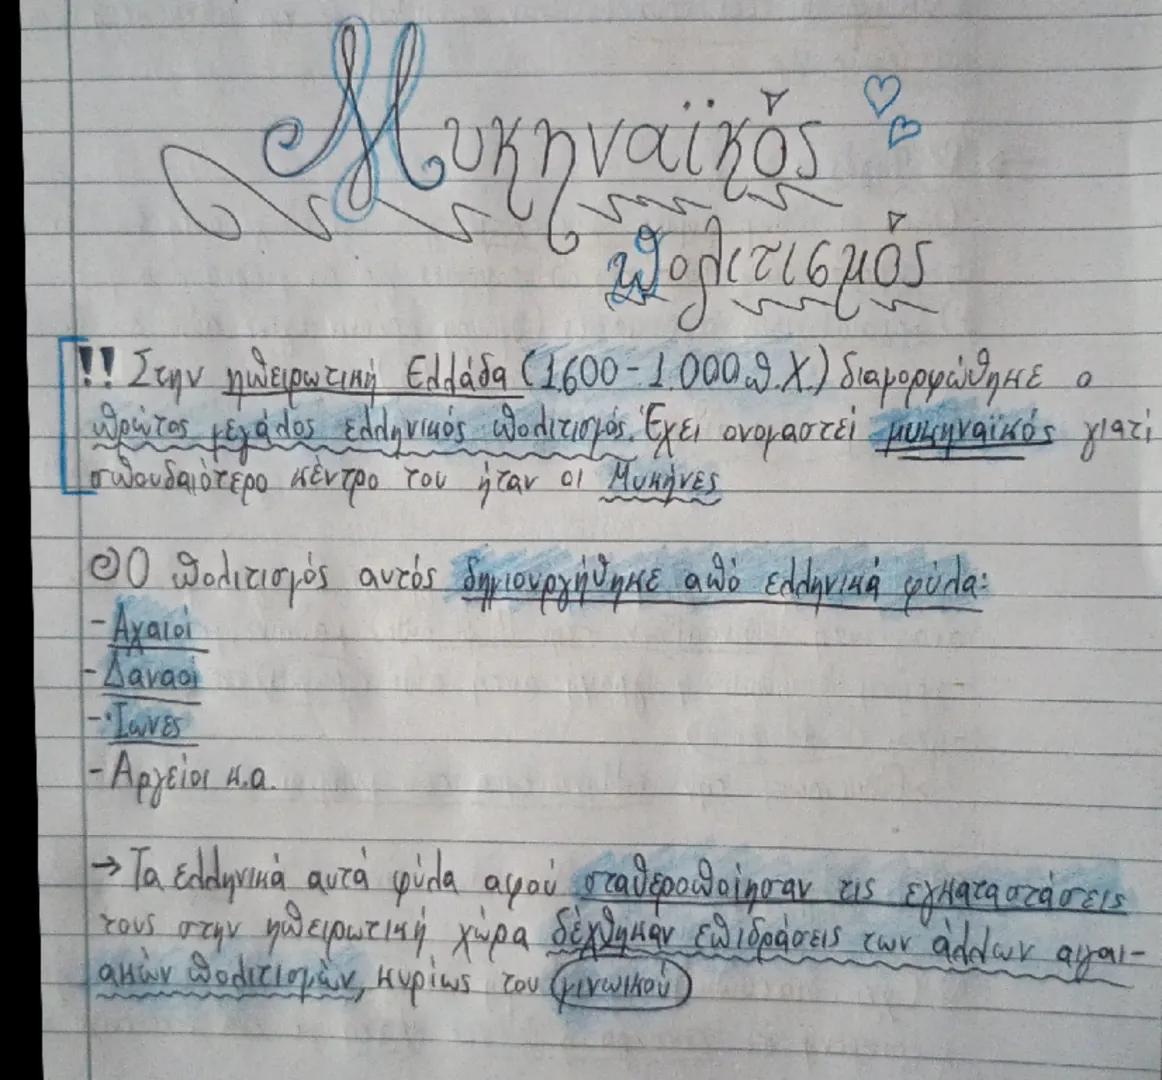 Μυκηναϊκός
πολιτισμός
!! Στην ηπειρωτική Ελλάδα (1.600-1.000 π.Χ.) διαμορφώθηκε ο
πρώτος μεγάλος ελληνικός πολιτισμός. Έχει ονομαστεί μυκηναϊκός γιατί
σπουδαιότερο κέντρο του ήταν οι Μυκήνες
Ο πολιτισμός αυτός δημιουργήθηκε από ελληνικά φύλα:
- Αχαιοί
- Δαναοί
- Ίωνες
- Αργείοι κ.α.
→ Τα ελληνικά αυτά φύλα αφού σταθεροποίησαν τις εγκαταστάσεις
τους στην ηπειρωτική χώρα δέχθηκαν επιδράσεις των άλλων αιγαι-
ακών πολιτισμών, κυρίως του μινωικού